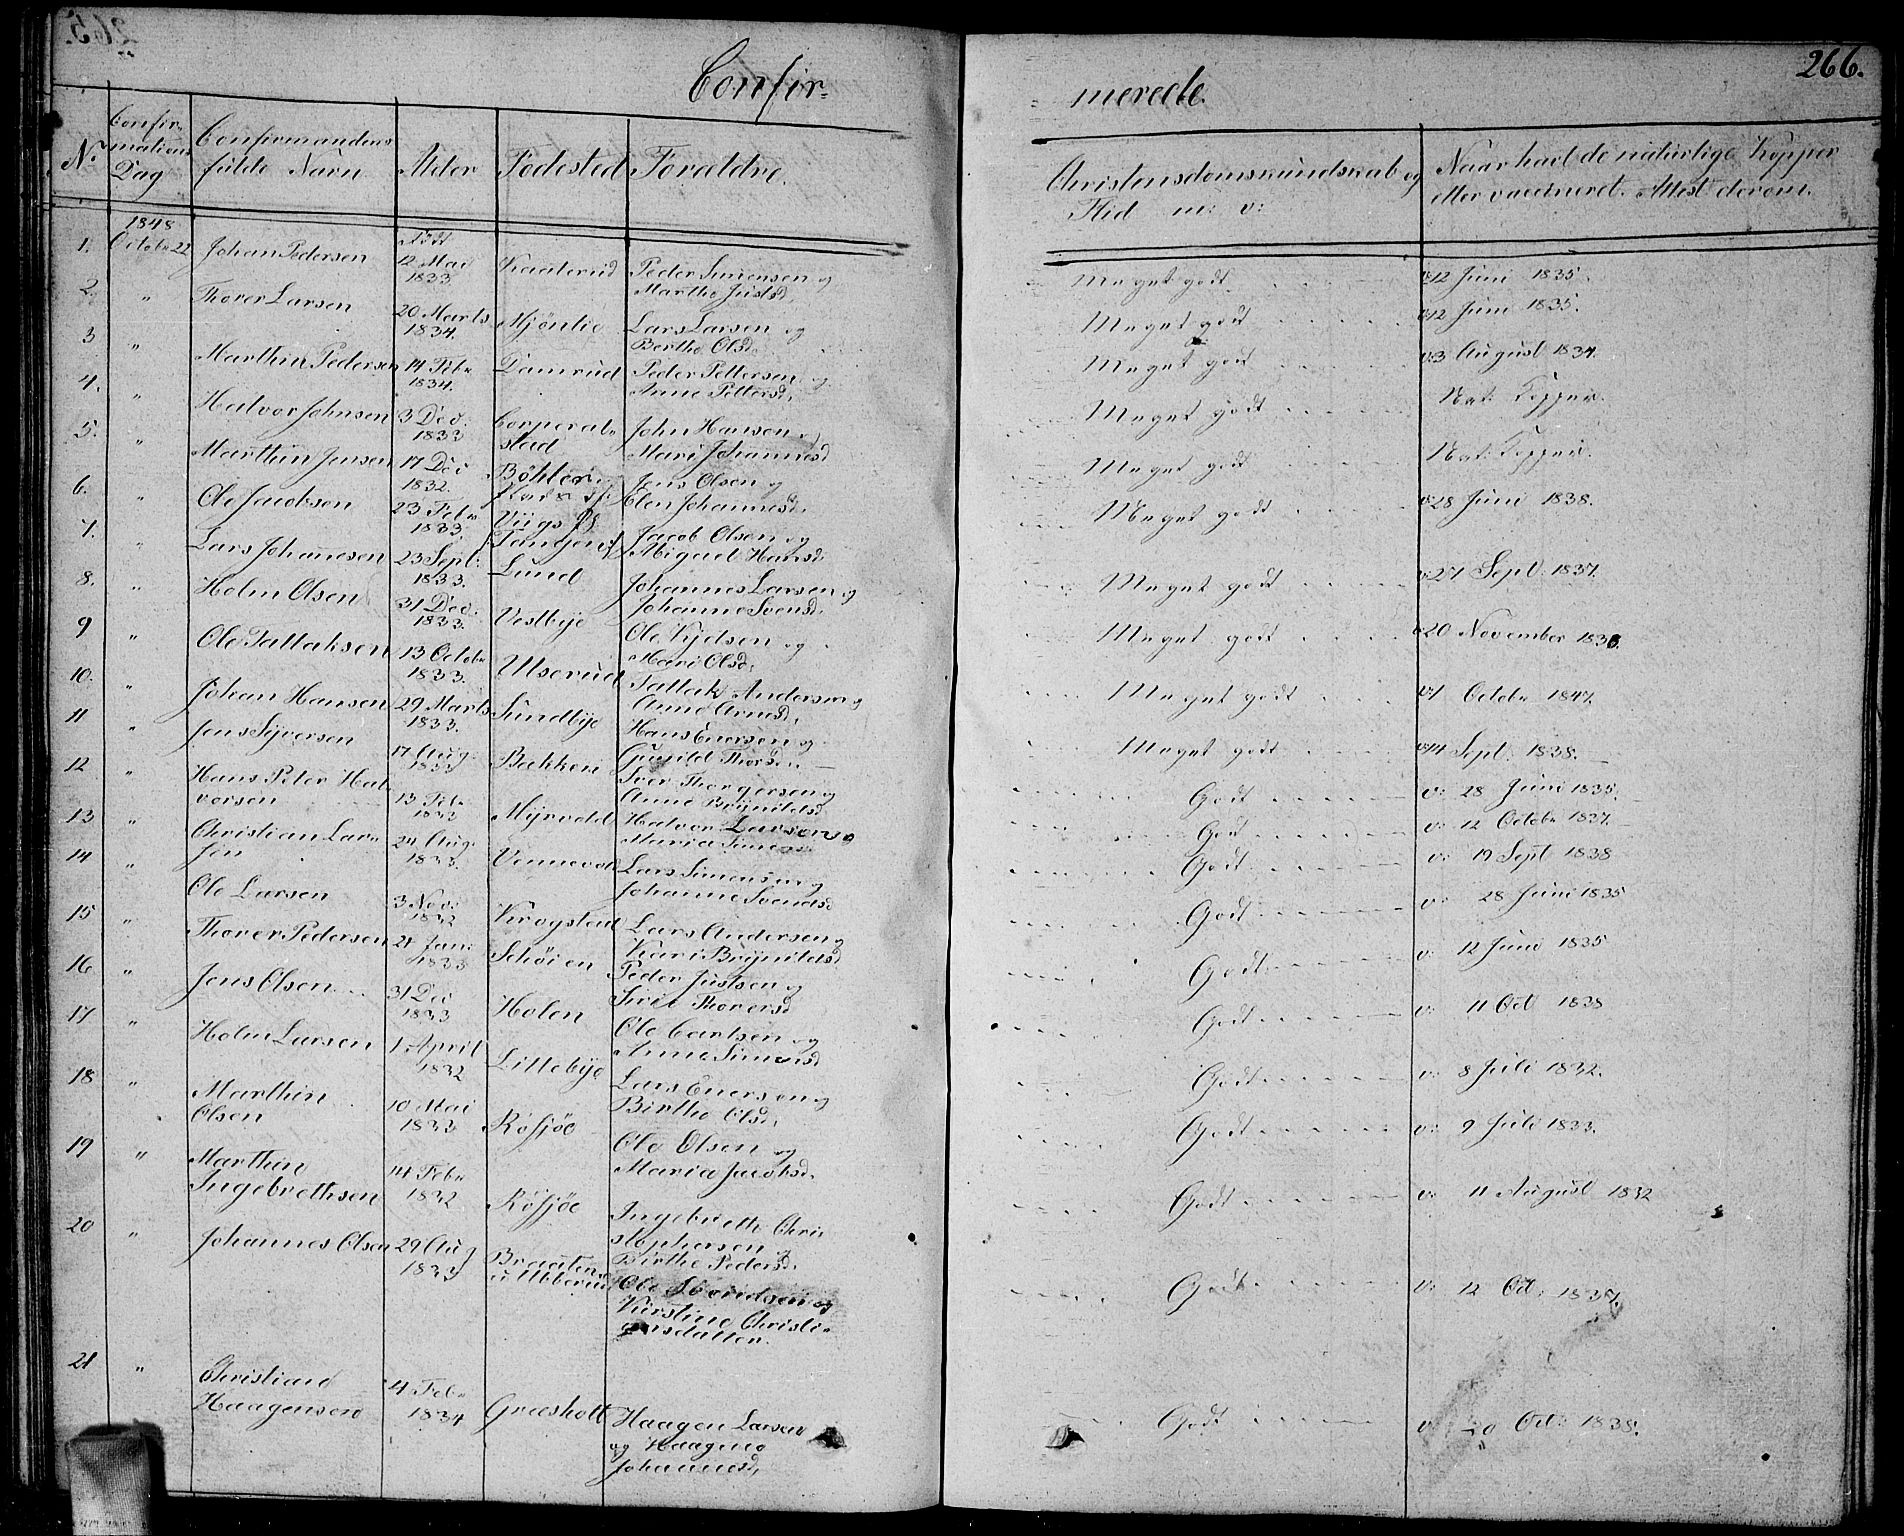 266.
Confir-
merede.
No.
Confir-
mations
Dag
Confirmandens
fulde Navn
Alder
Fødested
Forældre.
Christendomskundskab og
Flid m: v:
Naar havt de naturlige Kopper
eller vaccineret. Attest derom.
1848
1. Octobr 22 Johan Pedersen Født 12 Mai 1833 Kaaterud Peder Simensen og
Marthe Justsd. Meget godt v: 12 Juni 1835.
2. " Thorer Larsen 20 Marts 1834. Mjønlie Lars Larsen og
Berthe Olsd. Meget godt v: 12 Juni 1835.
3 " Marthin Pedersen 14 Febr 1834. Damrud Peder Pettersen og
Anne Pettersd. Meget godt v: 3 August 1834.
4. " Halvor Johnsen 3 Dec. 1833 Corperal-
stad John Hansen og
Mari Johannesd Meget godt Nat: Kopper.
5. " Marthin Jensen 17 Dec 1832. Bøhler
Jens Olsen og
Elen Johannesd. Meget godt Nat: Kopper.
6. " Ole Jacobsen 23 Febr 1833
Tangen
Jacob Olsen og
Abigael Hansd. Meget godt v: 28 Juni 1838.
7. " Lars Johannesen 23 Sept: 1833. Lund Johannes Larsen og
Johanne Svensd. Meget godt v: 27 Sept: 1837.
8. " Holm Olsen 31 Dec. 1833. Vestbye Ole Kjelsen og
Mari Olsd. Meget godt v: 20 November 1836.
9 " Ole Tallaksen 13 Octobr 1833. Ulserud Tallak Andersen og
Anne Arnesd. Meget godt v: 1 Octobr 1847.
10. " Johan Hansen 29 Marts 1833. Sundbye Hans Enersen og
Gunild Thorsd. Meget godt v: 14 Sept: 1838.
11 " Jens Syversen 17 Aug. 1833 Bakken Syver Thorgersen og
Anne Brynildsd Godt v: 28 Juni 1835.
12 " Hans Peter Hal-
vorsen 13 Febr 1833 Myrvold Halvor Larsen og
Maria Godt v: 12 Octobr 1837.
13 " Christian Lar-
sen 24 Aug. 1833. Vennevold Lars Simensen og
Johanne Svendsd Godt v: 19 Sept 1838
14 " Ole Larsen 3 Nov. 1832 Krogstad Lars Andersen og
Kari Brynildsd Godt v: 28 Juni 1835
15 " Thorer Pedersen 21 Jan: 1833 Schøien Peder Justsen og
Siri Thorersd Godt v: 12 Juni 1835
16 " Jens Olsen 31 Dec 1833 Holen Ole Carlsen og
Anne Simensd Godt v: 11 Oct 1838
17 " Holm Larsen 1. April 1832 Littebye Lars Enersen og
Birthe Olsd. Godt v: 8 Juli 1832.
18 " Marthin
Olsen 10 Mai 1833 Røsjøe Ole Olsen og
Maria Jacobsd. Godt v: 9 Juli 1833.
19 " Marthin
Ingebrethsen 14 Febr 1832 Røsjøe Ingebreth Chri-
stophersen og
Birthe Pedersd. Godt v: 11 August 1832
20 " Johannes Olsen 29 Aug 1833 Braaten
u Ole Svendsen og
Kirstine Christi-
ansdatter. Godt v: 12 Oct: 1837.
21 " Christian
Haagensen 4 Febr 1834 Græsholt Haagen Larsen
og Haagine
Johannesd. Godt v: 20 Oct: 1838.